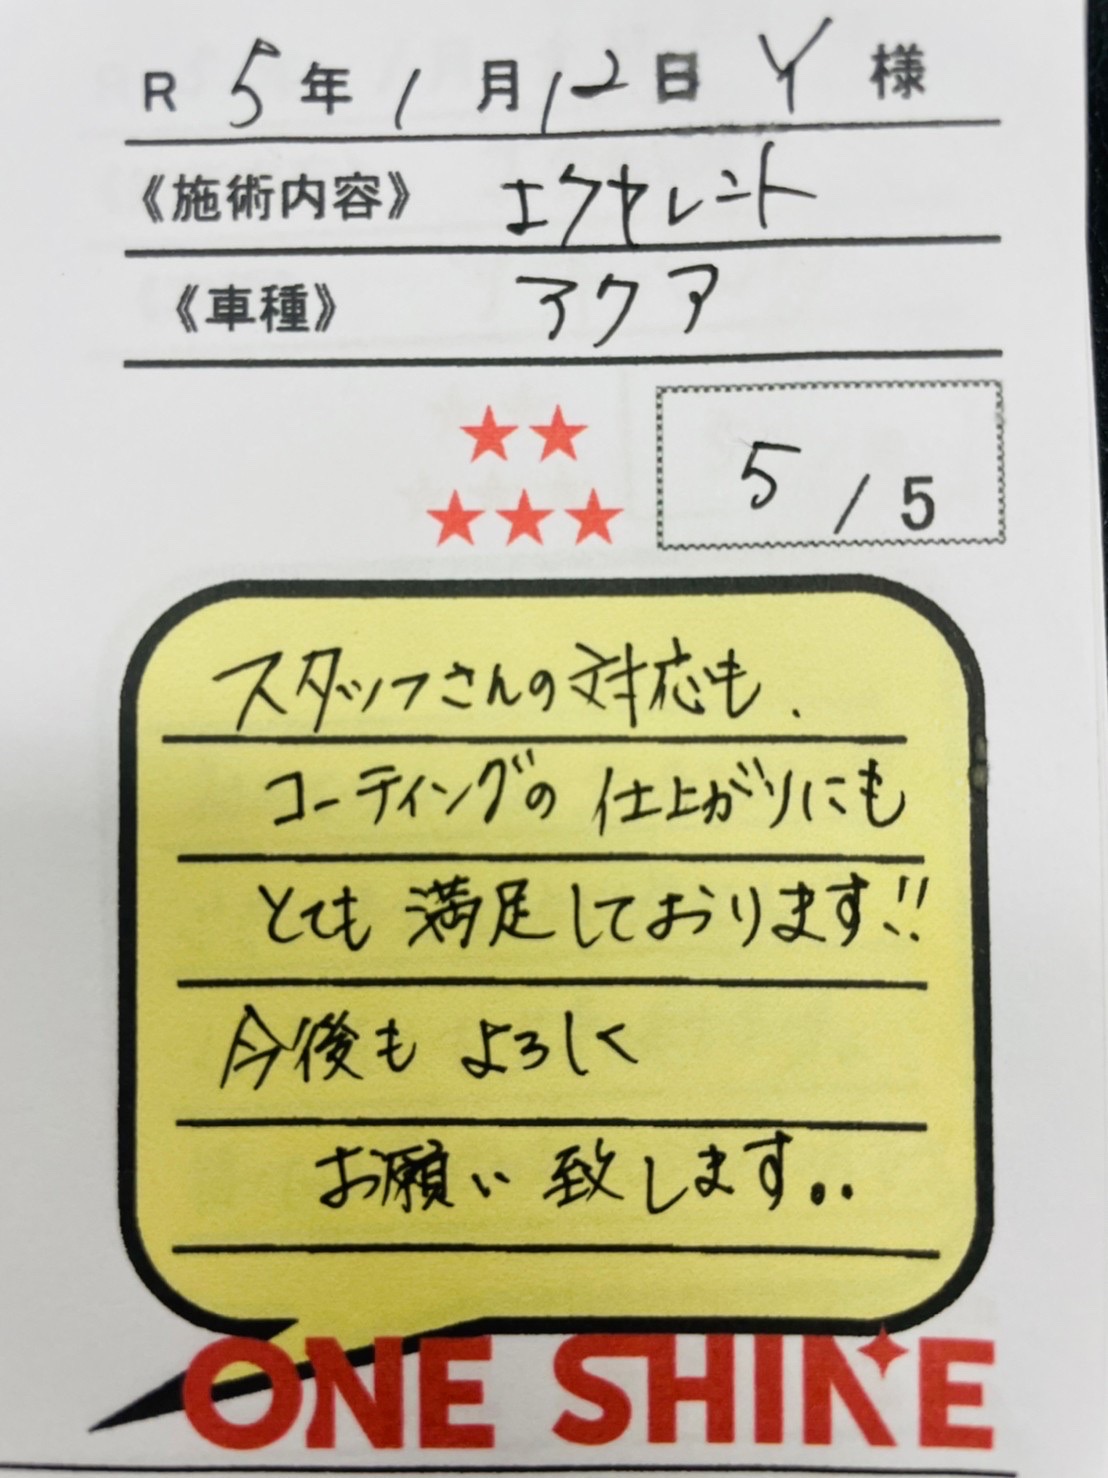 R 5年1月12日 Y様
《施術内容》 エクセレント
《車種》 アクア
5/5
スタッフさんの対応も、
コーティングの仕上がりにも
とても満足しております!!
今後もよろしく
お願い致します。.
ONE SHINE